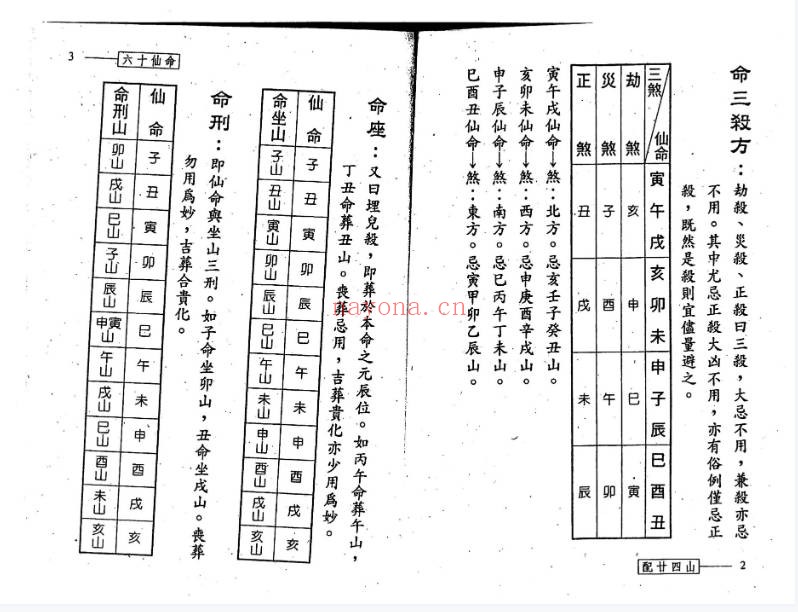 命三殺方：劫殺、災殺、正殺曰三殺，大忌不用，兼殺亦忌
不用。其中尤忌正殺大凶不用，亦有俗例僅忌正
殺，既然是殺則宜儘量避之。
三煞 仙命 寅午戌 亥卯未 申子辰 巳酉丑
劫煞 亥 申 巳 寅
災煞 子 酉 午 卯
正煞 丑 戌 未 辰
寅午戌仙命→煞：北方。忌亥壬子癸丑山。
亥卯未仙命→煞：西方。忌申庚酉辛戌山。
申子辰仙命→煞：南方。忌巳丙午丁未山。
巳酉丑仙命→煞：東方。忌寅甲卯乙辰山。
配廿四山 2
nayona.cn
六十仙命 3
命座：又曰埋兒殺，即葬於本命之元辰位。如丙午命葬午山，
丁丑命葬丑山。喪葬忌用，吉葬貴化亦少用爲妙。
仙命 子 丑 寅 卯 辰 巳 午 未 申 酉 戌 亥
命坐山 子山 丑山 寅山 卯山 辰山 巳山 午山 未山 申山 酉山 戌山 亥山
命刑：即仙命與坐山三刑。如子命坐卯山，丑命坐戌山。喪葬
勿用爲妙，吉葬合貴化。
仙命 子 丑 寅 卯 辰 巳 午 未 申 酉 戌 亥
命刑山 卯山 戌山 巳山 子山 辰山 申寅山 午山 戌山 巳山 酉山 未山 亥山